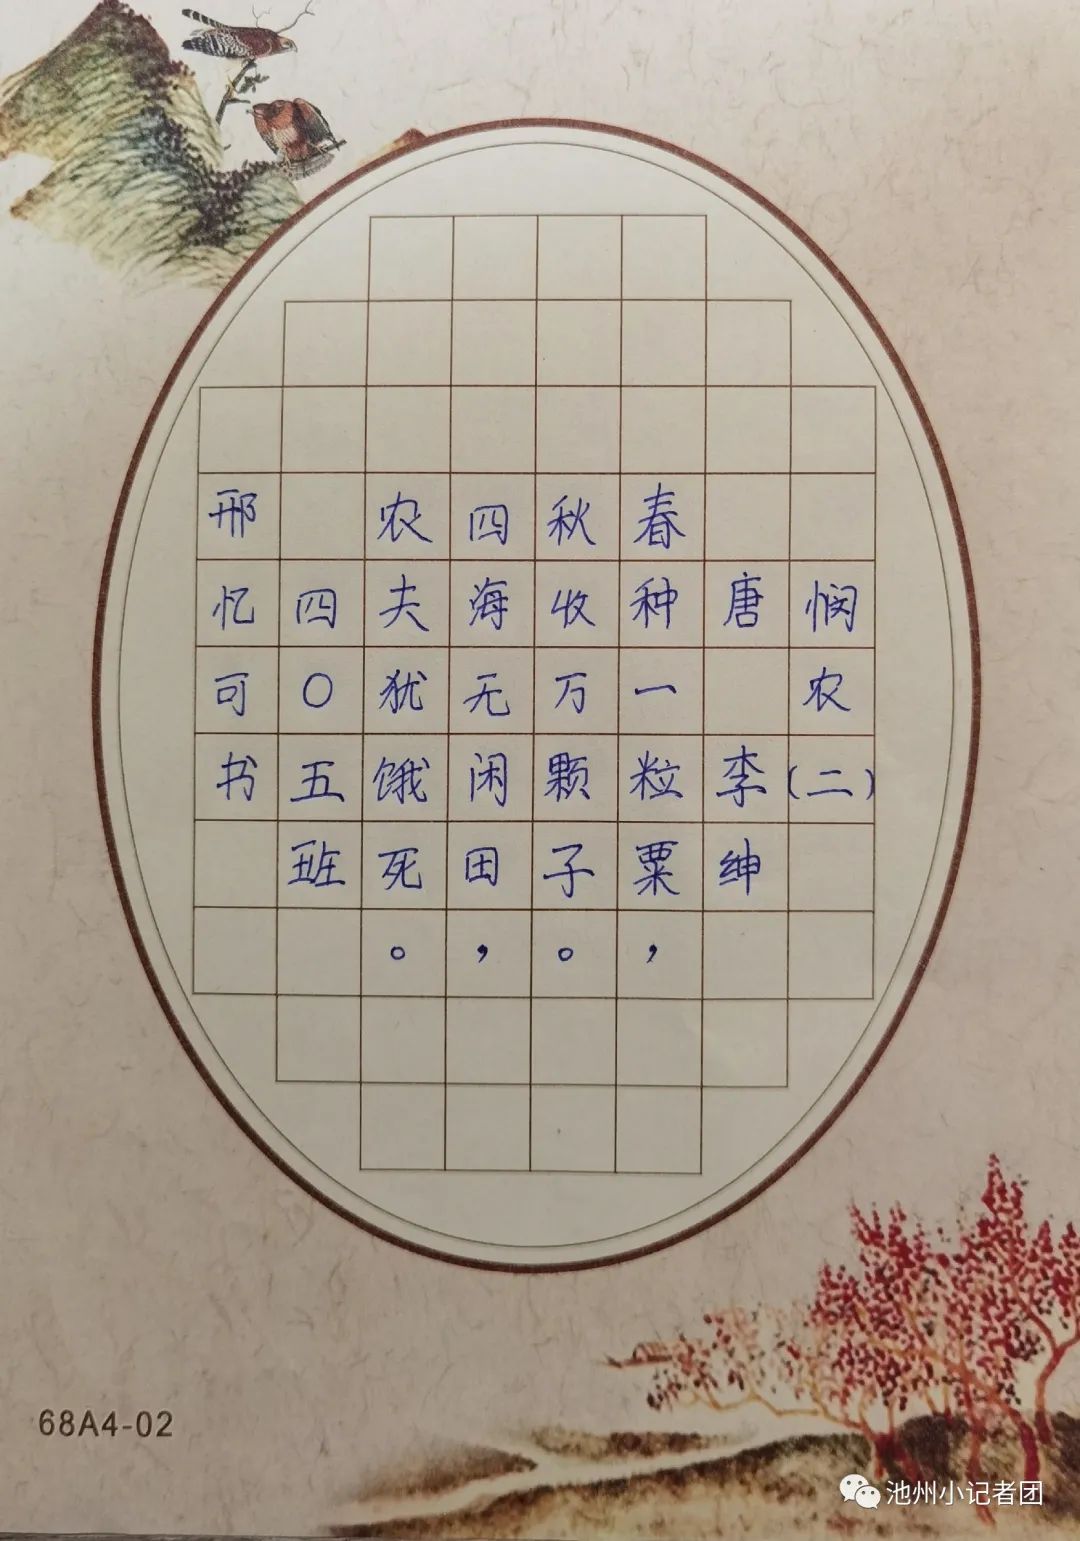 悯农(二)
唐 李绅
春种一粒粟，
秋收万颗子。
四海无闲田，
农夫犹饿死。
四〇五班
邢忆可书
68A4-02
池州小记者团